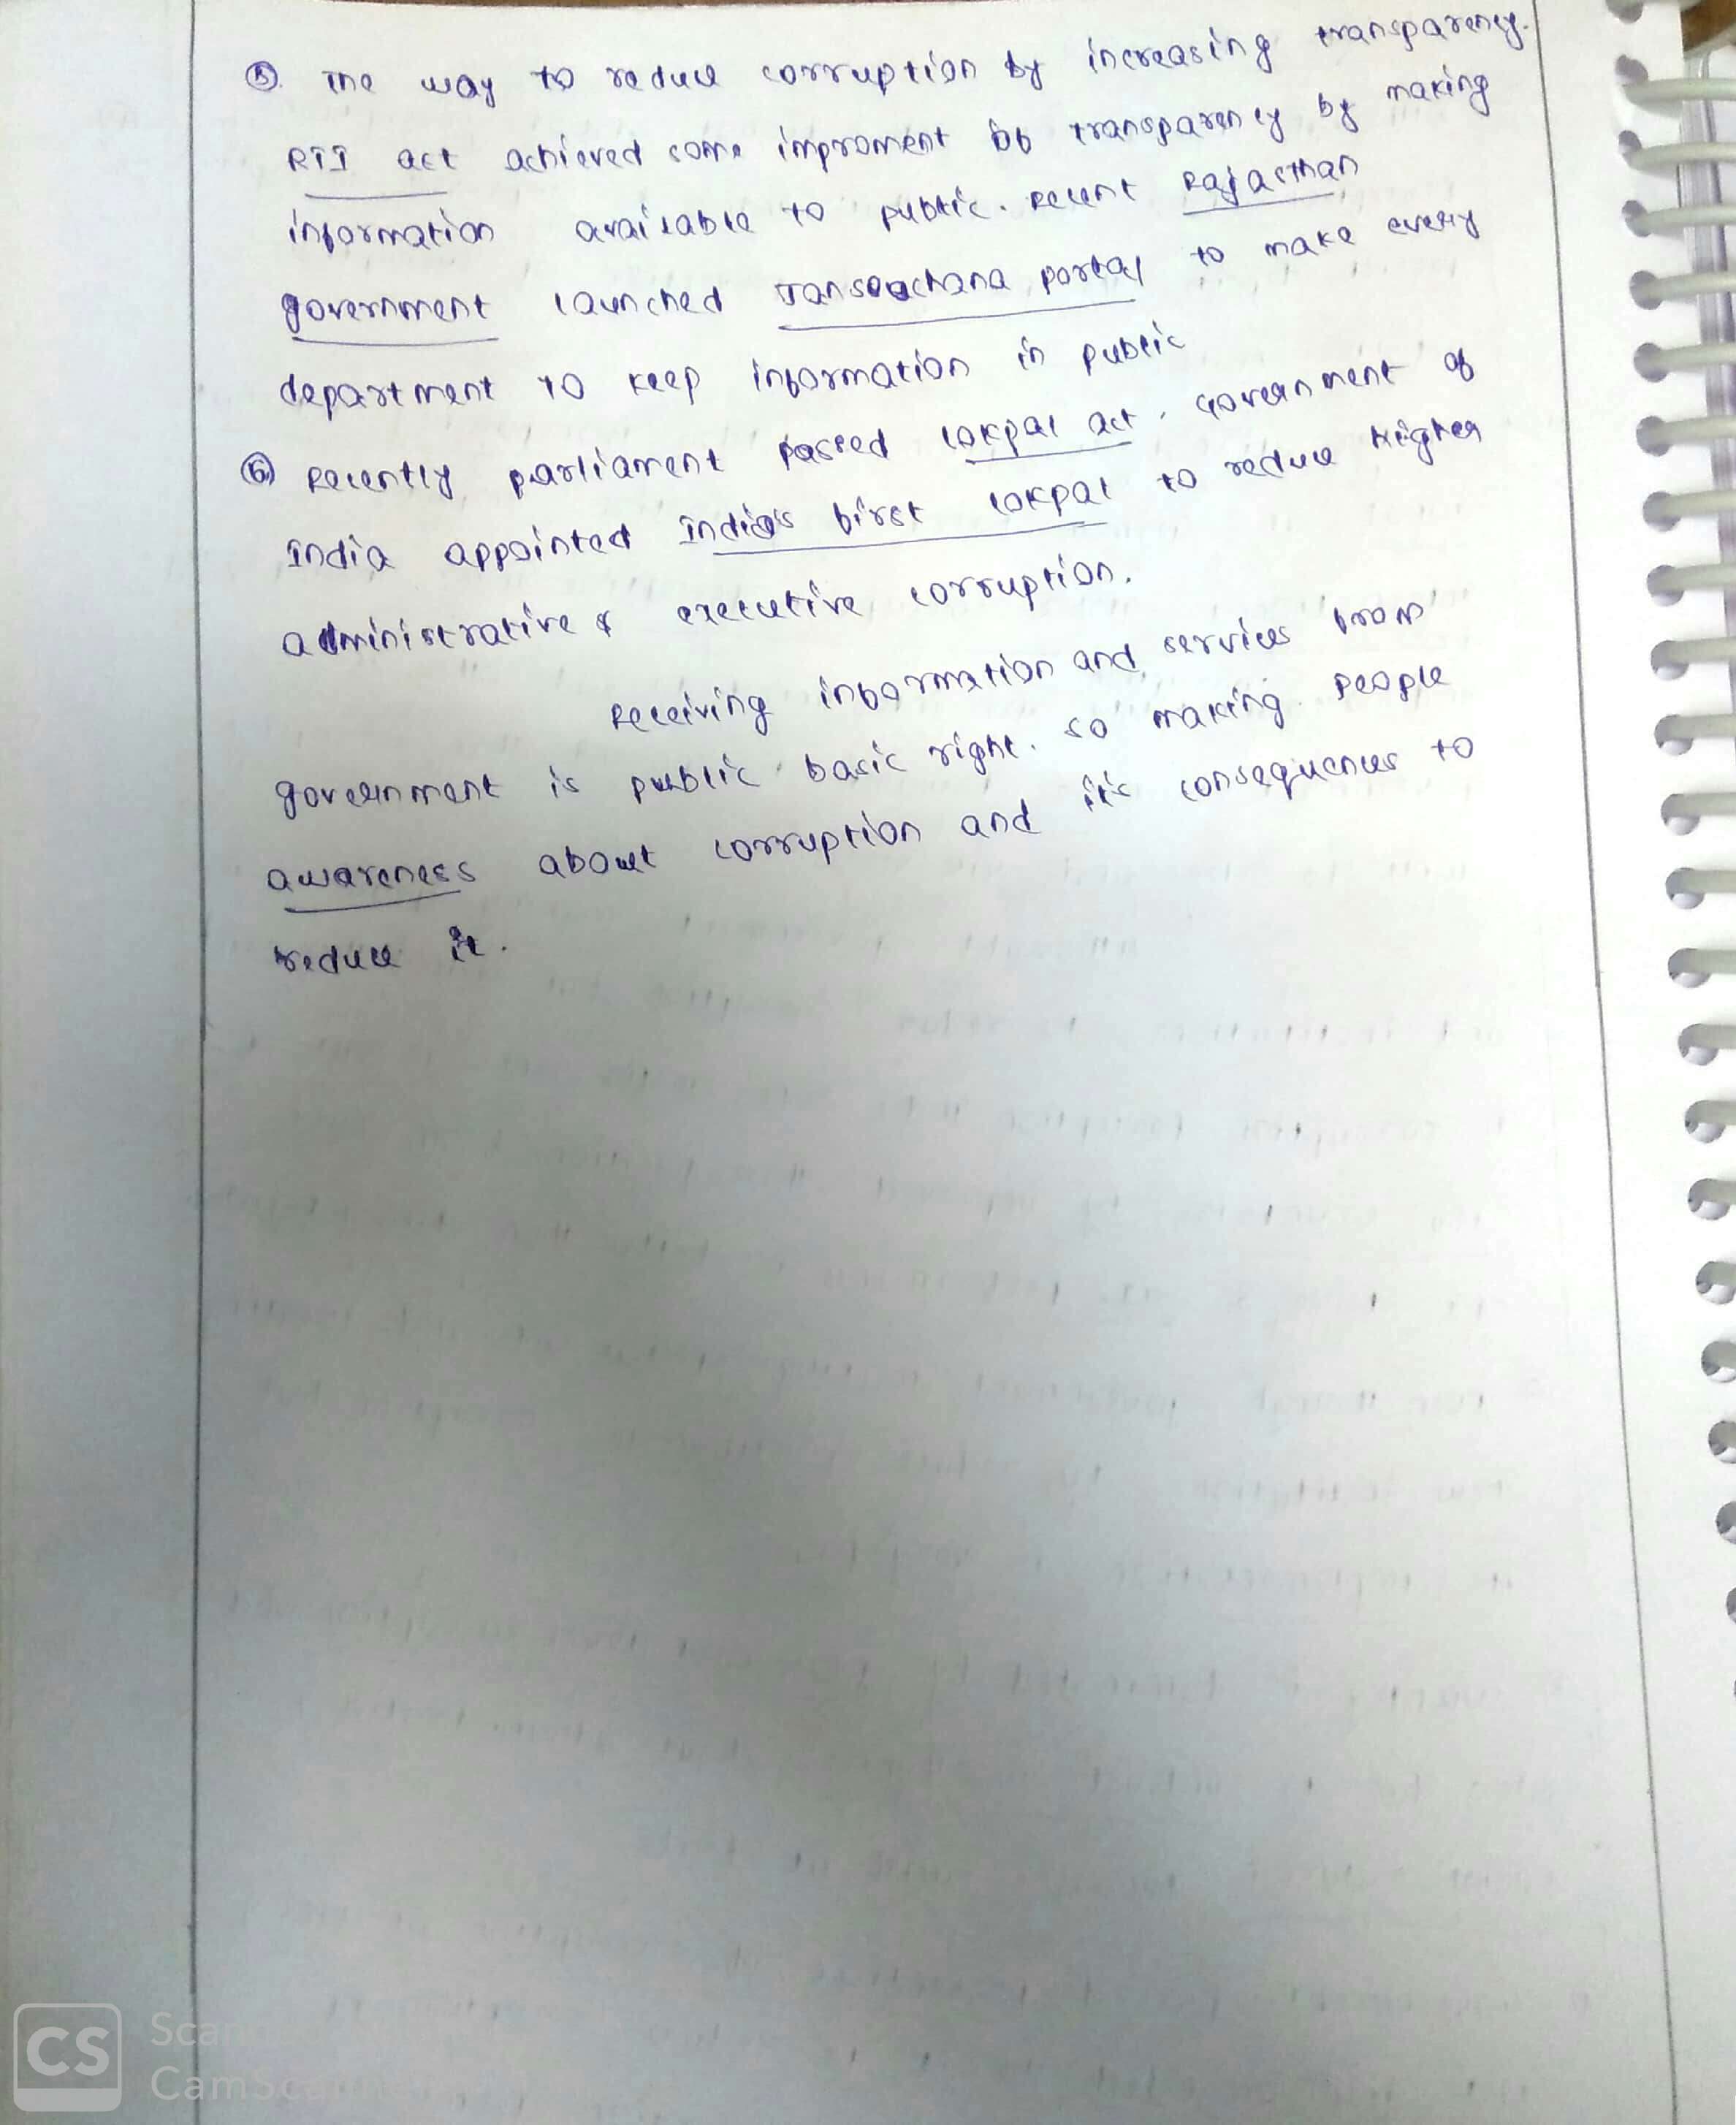 ⑤. The way to reduce corruption by increasing transparency.
RTI act achieved some improment of transparency by making
information available to public. Recent Rajasthan
government launched Jansoochana portal to make every
department to keep information in public
⑥ Recently parliament passed Lokpal act. Government of
India appointed India's first Lokpal to reduce Higher
administrative & executive corruption.
Receiving information and services from
government is public basic right. so making people
awareness about corruption and it's consequences to
reduce it.
CS